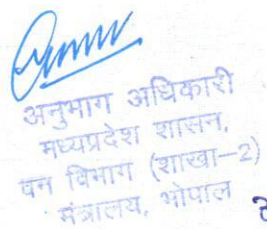 अनुभाग अधिकारी
मध्यप्रदेश शासन,
वन विभाग (शाखा–2)
मंत्रालय, भोपाल